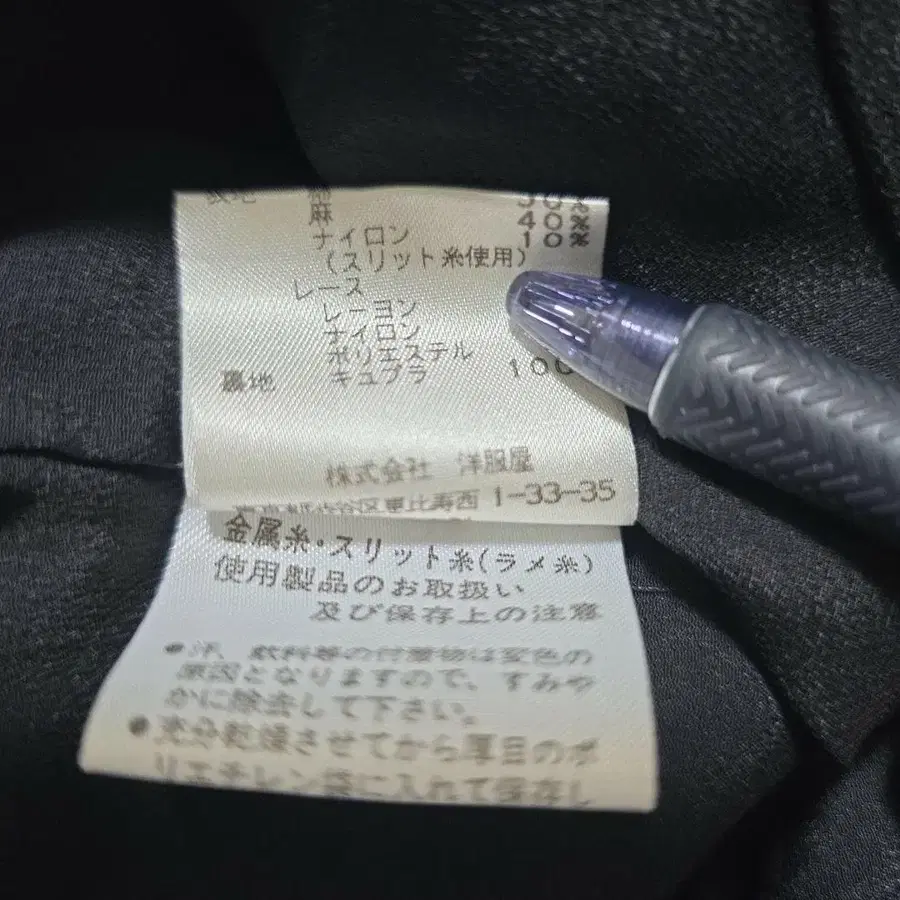 表地 綿 50%
麻 40%
ナイロン 10%
(スリット糸使用)
レース
レーヨン
ナイロン
ポリエステル
裏地 キュプラ 100
株式会社 洋服屋
東京都渋谷区恵比寿西 1-33-35
金属糸・スリット糸(ラメ糸)
使用製品のお取扱い
及び保存上の注意
●汗、飲料等の付着物は変色の
原因となりますので、すみや
かに除去して下さい。
●充分乾燥させてから厚目のポ
リエチレン袋に入れて保存し